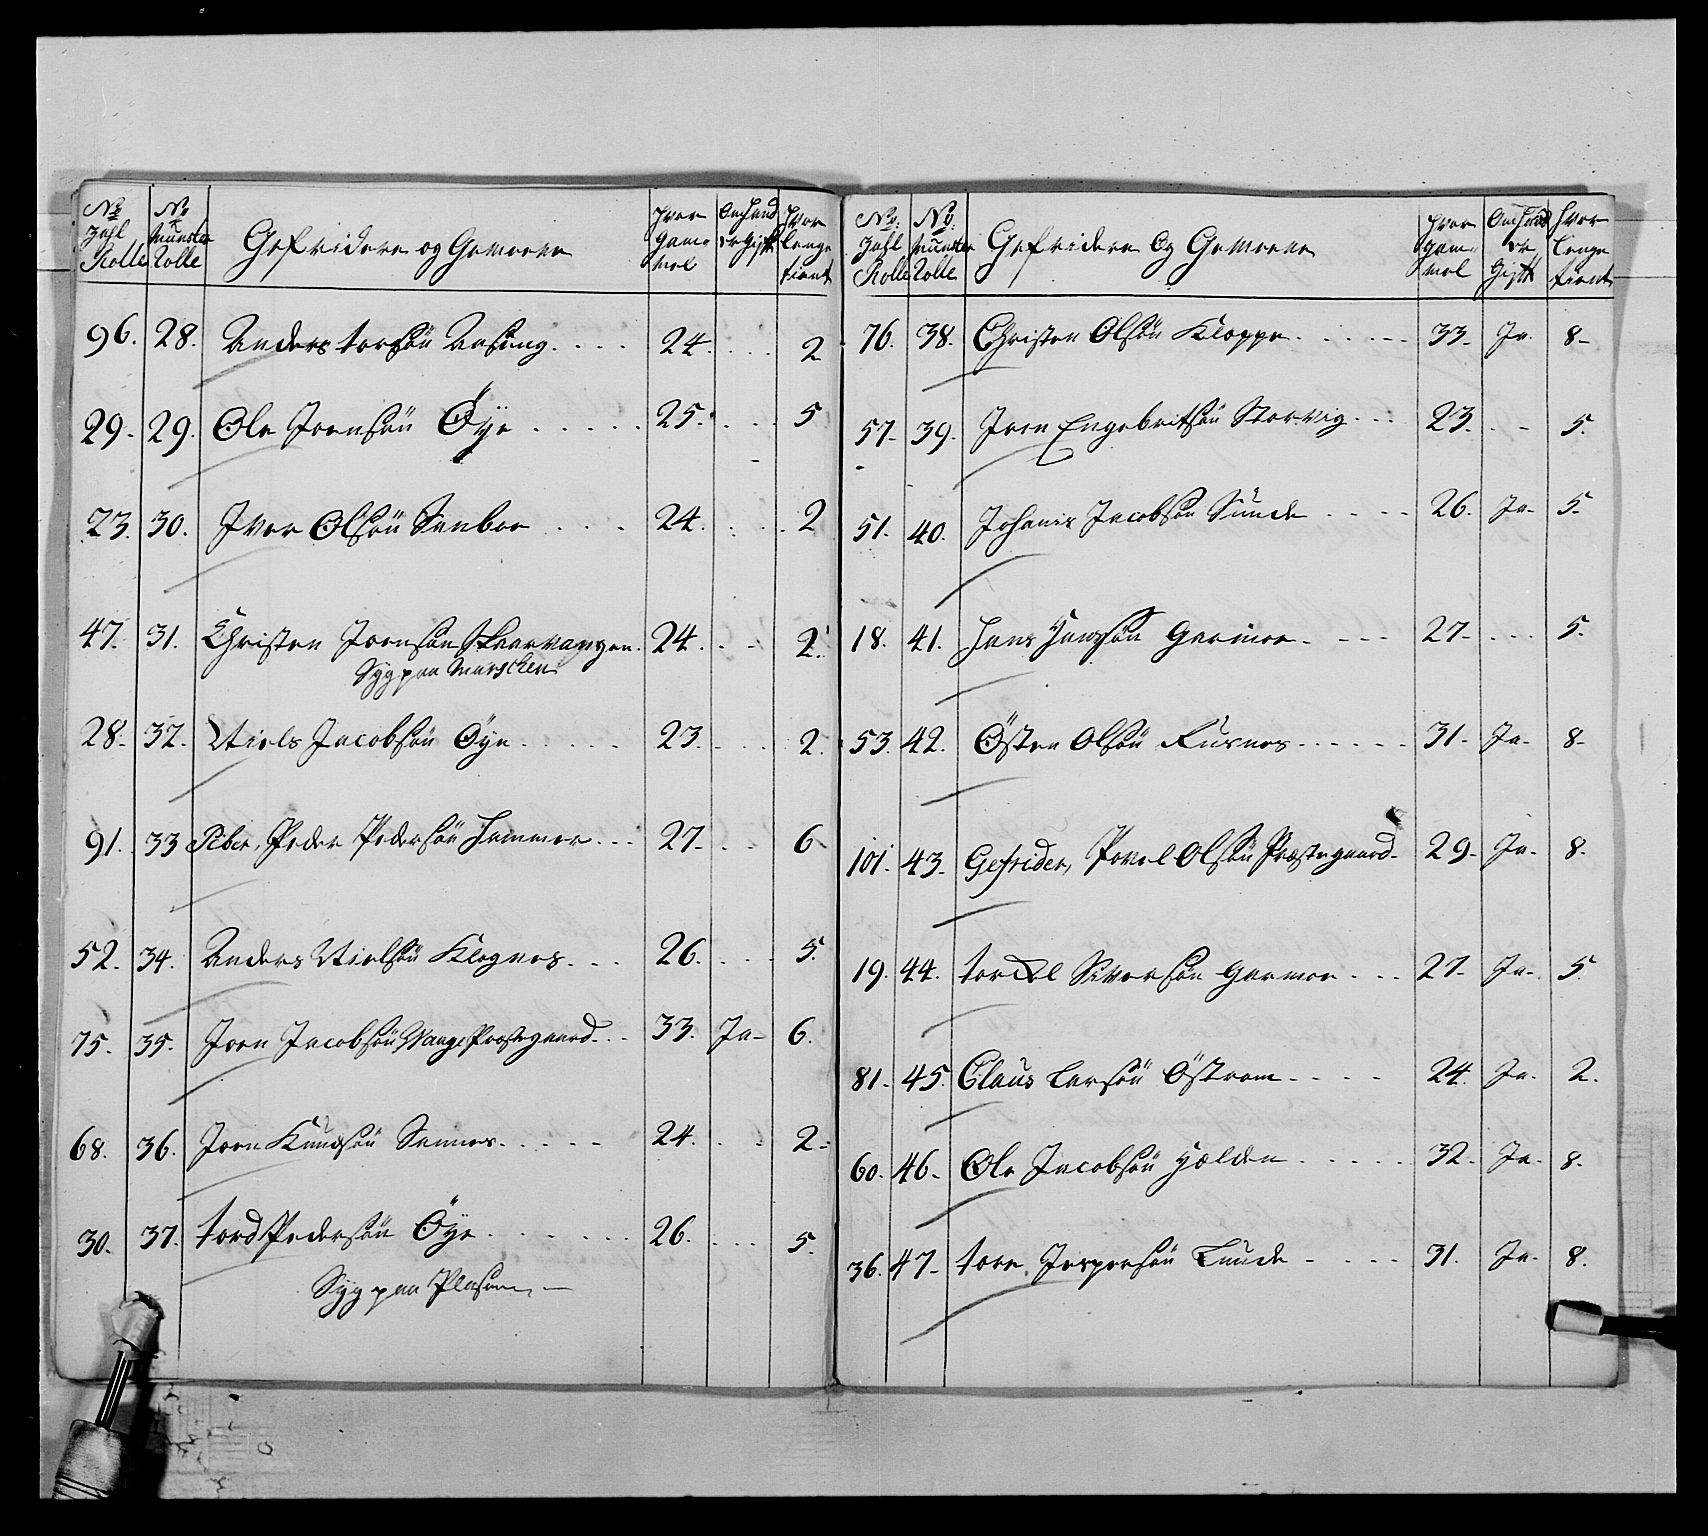 No Zahl Rolle | No Munster Rolle | Gefridere og Gemeene | hvor gam= mel | Om hand er Gift | hvor lenge tient
96. 28. Anders torsøn 24. 2
29. 29. Ole Joensøn Öye 25. 5
23. 30. Iver Olsøn Sanboe 24. 2
47. 31. Christen Joensøn Skaarvangen. 24. 2.
Syg paa Marschen
28. 32. Niels Jacobsøn Öye 23. 2.
91. 33 Piber, Peder Pedersøn Hammer 27. 6
52. 34. Anders Nielsøn Klognes 26. 5.
75. 35. Joen Jacobsøn Vange Præstegaard 33. Ja 6.
68. 36. Joen Knudsøn Sannes 24. 2.
30. 37. tord Pedersøn Öye 26. 5.
Syg paa Pladsen
No: Zahl Rolle | No: Munster Rolle | Gefridere Og Gemeene | hvor gam= mel | Om hand er Gift | hvor lenge tient
76. 38. Christen Olsøn Kloppe 33. Ja. 8.
57. 39. Joen Engebritsøn Storvig 23. 5.
51. 40. Johanis Jacobsøn Sunde 26. Ja. 5.
18. 41. Hans Hansøn Garmoe 27. 5.
53. 42. Østen Olsøn Fusnes 31. Ja. 8.
101. 43. Gefrider, Povel Olsøn Præstegaard 29. Ja. 8.
19. 44. torkel Siversøn Garmoe 27. Ja. 5.
81. 45. Claus Larsøn Östrem 24. Ja. 2.
60. 46. Ole Jacobsøn Hælden 32. Ja. 8.
36. 47. tore Jespersøn Lunde 31. Ja. 8.